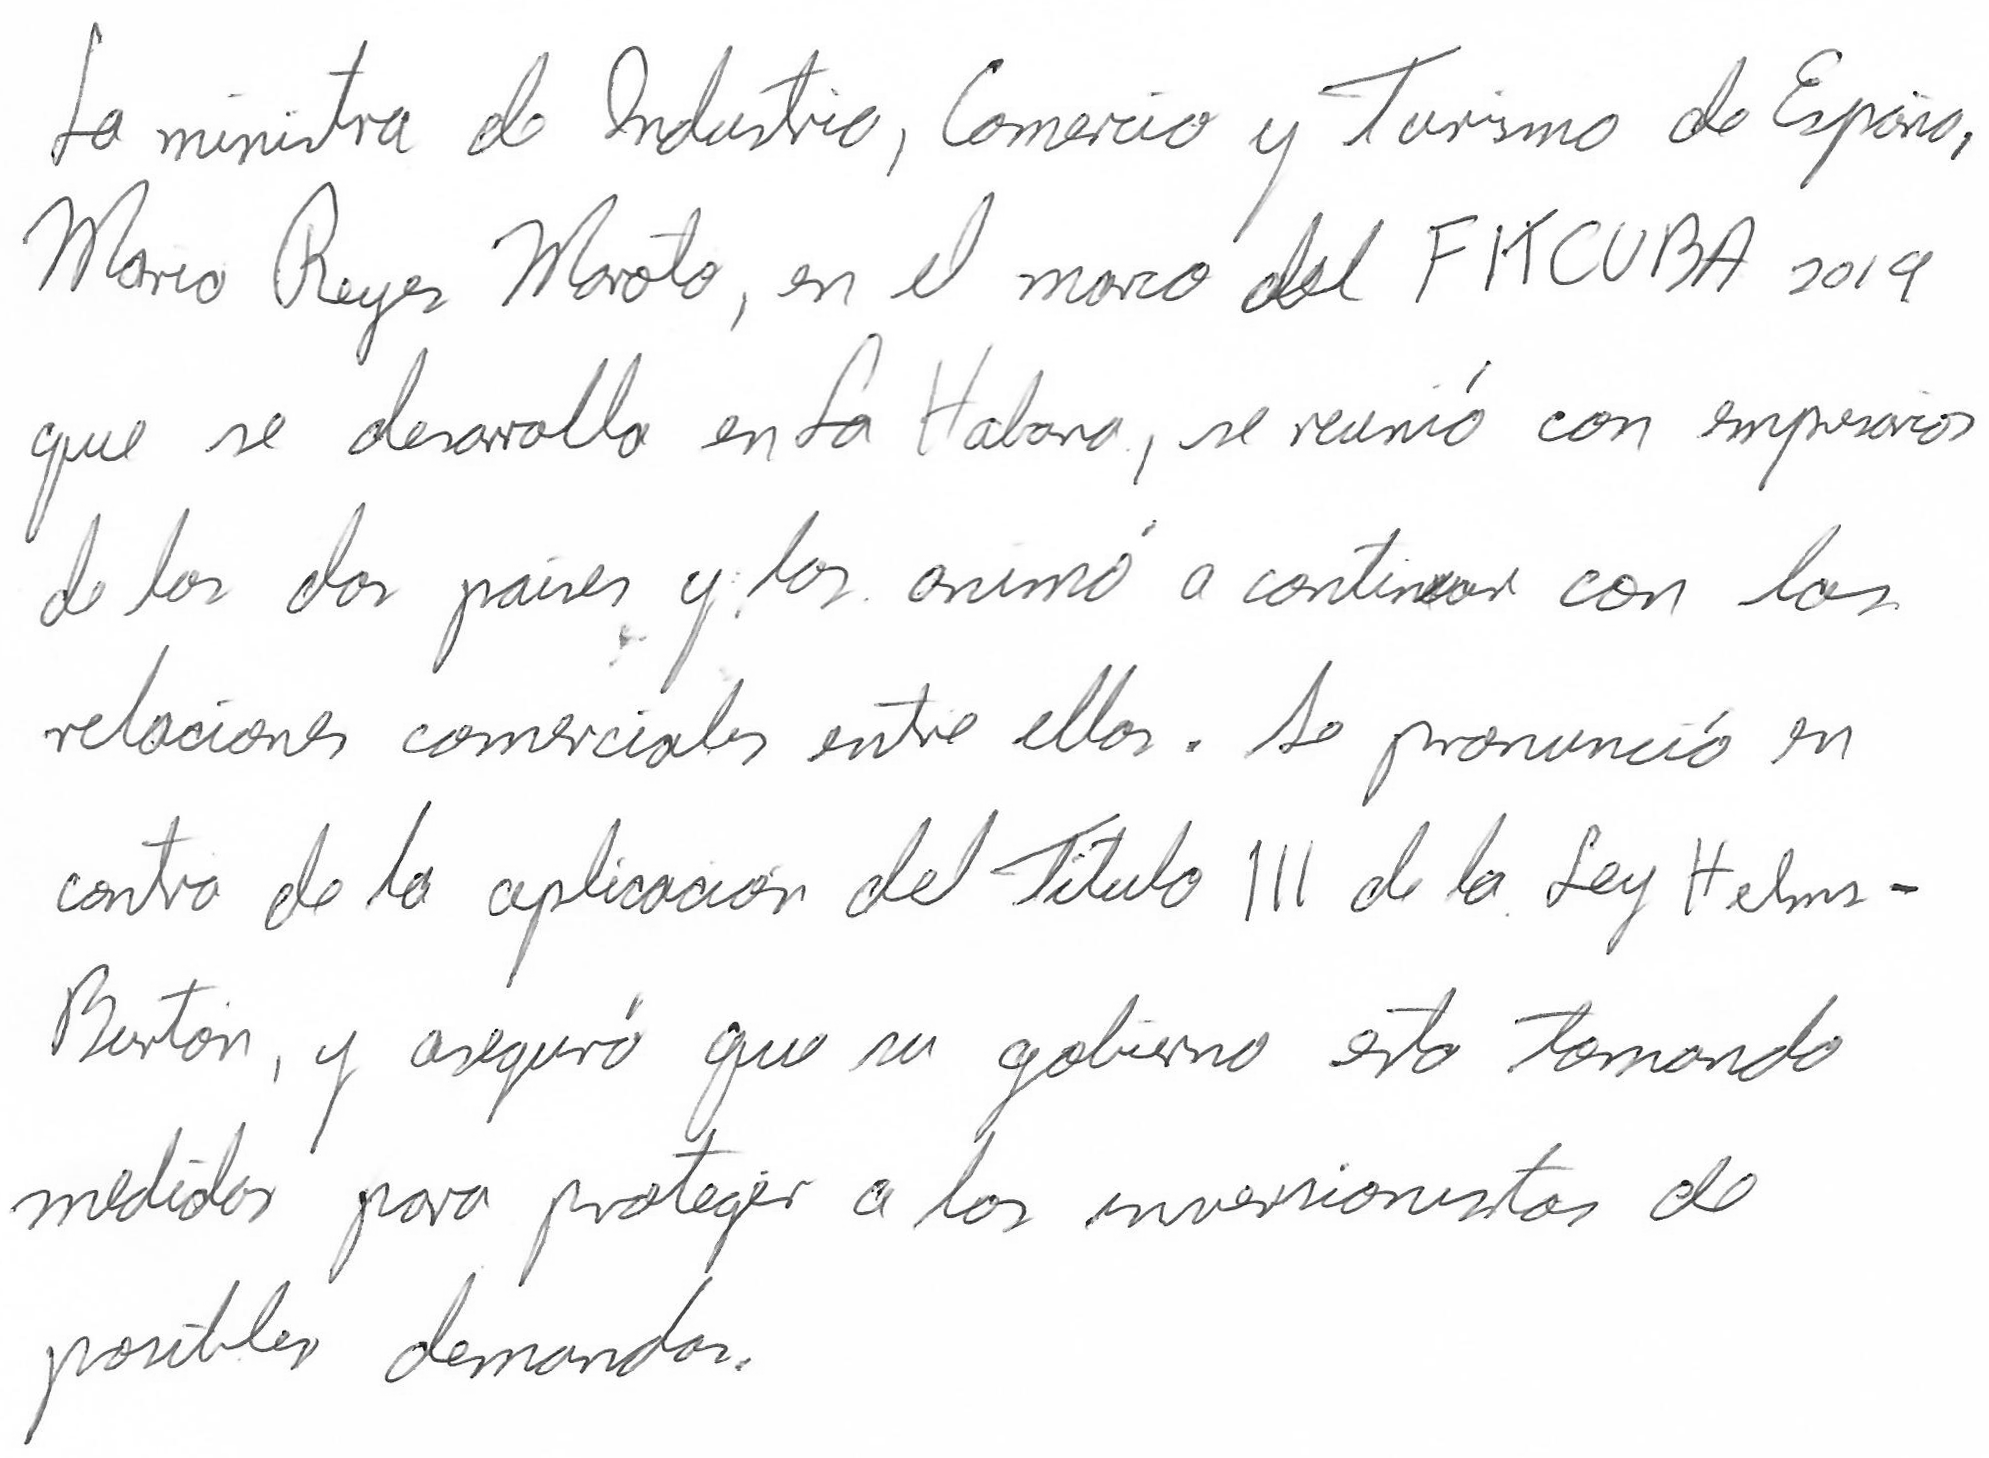 La ministra de Industria, Comercio y Turismo de España,
María Reyes Maroto, en el marco del FITCUBA 2019
que se desarrolla en La Habana, se reunió con empresarios
de los dos países y los animó a continuar con las
relaciones comerciales entre ellos. Se pronunció en
contra de la aplicación del Título III de la Ley Helms-
Burton, y aseguró que su gobierno esta tomando
medidas para proteger a los inversionistas de
posibles demandas.